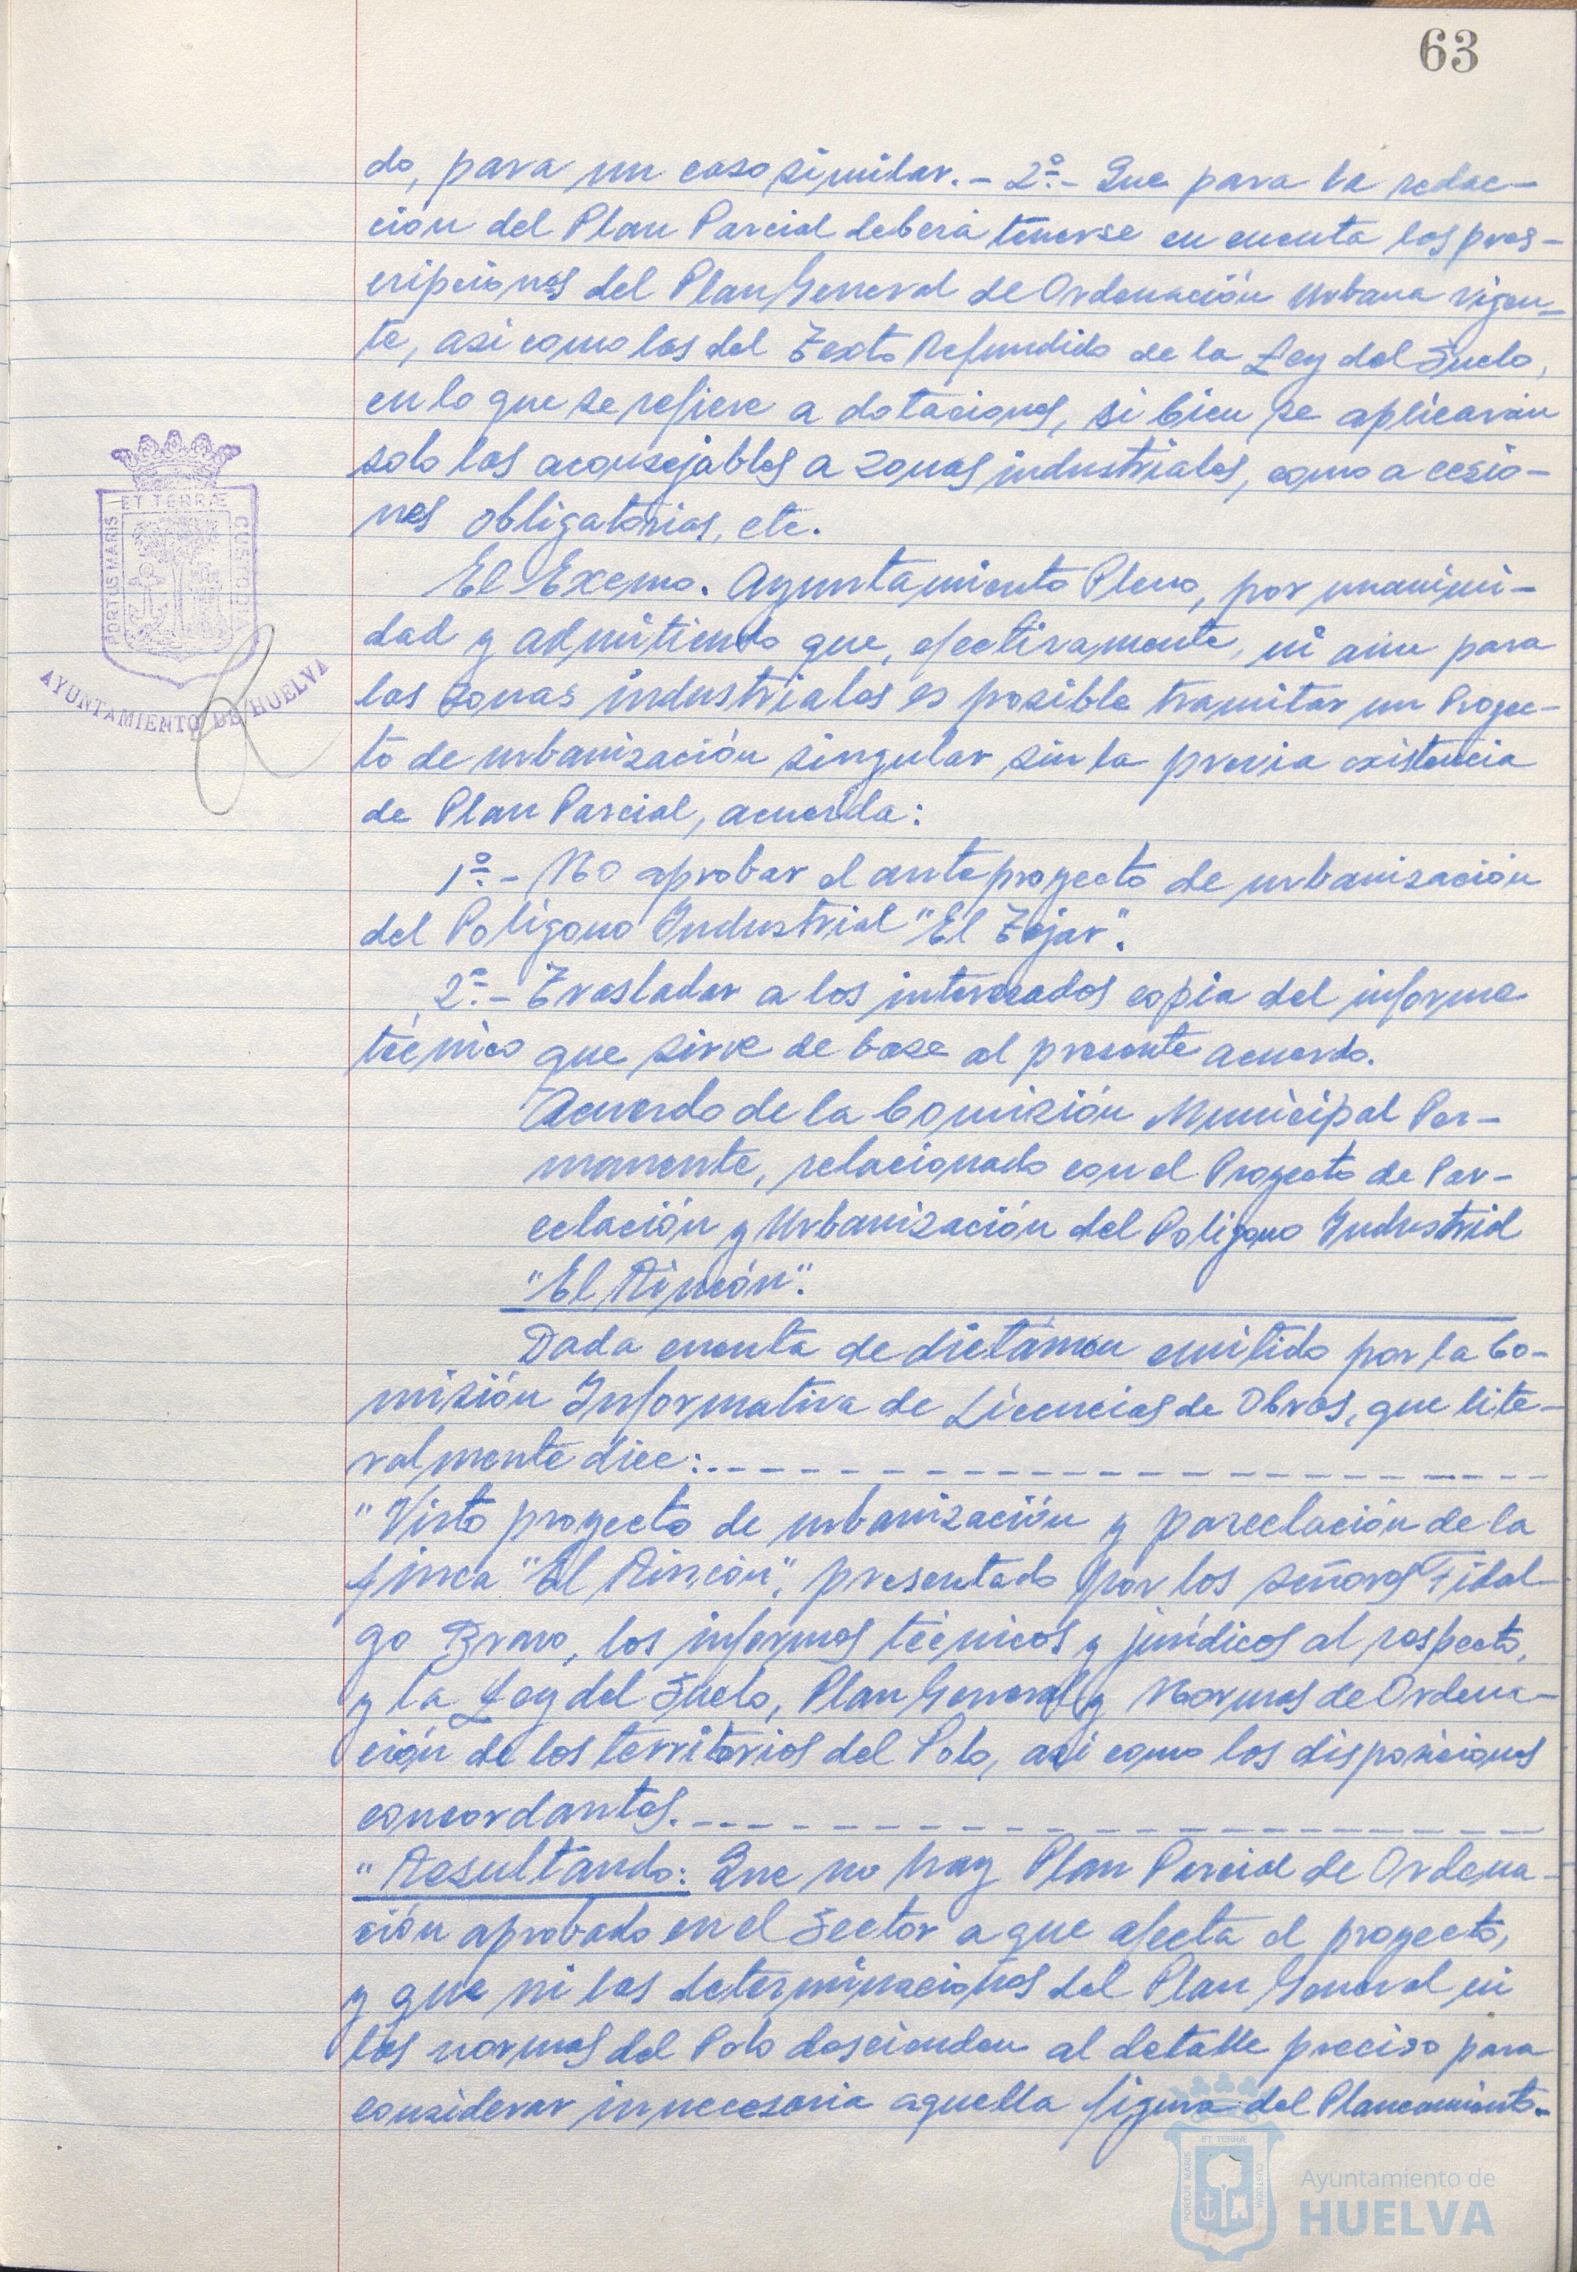 63
do, para un caso similar.- 2º.- Que para la redac-
ción del Plan Parcial deberá tenerse en cuenta las pres-
cripciones del Plan General de Ordenación Urbana vigen-
te, asi como las del Texto Refundido de la Ley del Suelo,
en lo que se refiere a dotaciones, si bien se aplicarán
solo las aconsejables a zonas industriales, como a cesio-
nes obligatorias, etc.
El Excmo. Ayuntamiento Pleno, por unanimi-
dad y admitiendo que, efectivamente, ni aun para
las zonas industriales es posible tramitar un Proyec-
to de urbanización singular sin la previa existencia
de Plan Parcial, acuerda:
1º.- No aprobar el anteproyecto de urbanización
del Polígono Industrial "El Tejar".
2º.- Trasladar a los interesados copia del informe
técnico que sirve de base al presente acuerdo.
Acuerdo de la Comisión Municipal Per-
manente, relacionado con el Proyecto de Par-
celación y Urbanización del Poligono Industrial
"El Rincón".
Dada cuenta de dictámen emitido por la Co-
misión Informativa de Licencias de Obras, que lite-
ralmente dice:
"Visto proyecto de urbanización y parcelación de la
finca "El Rincón", presentado por los señores Fidal-
go Bravo, los informes técnicos y jurídicos al respecto,
y la Ley del Suelo, Plan General y Normas de Ordena-
ción de los territorios del Polo, asi como las disposiciones
concordantes.
"Resultando: Que no hay Plan Parcial de Ordena-
ción aprobado en el Sector a que afecta el proyecto,
y que ni las determinaciones del Plan General ni
las normas del Polo descienden al detalle preciso para
considerar innecesaria aquella figura del Planeamiento.
PORTUS MARIS ET TERRÆ CUSTODIA
AYUNTAMIENTO DE HUELVA
PORTUS MARIS ET TERRÆ CUSTODIA
Ayuntamiento de
HUELVA